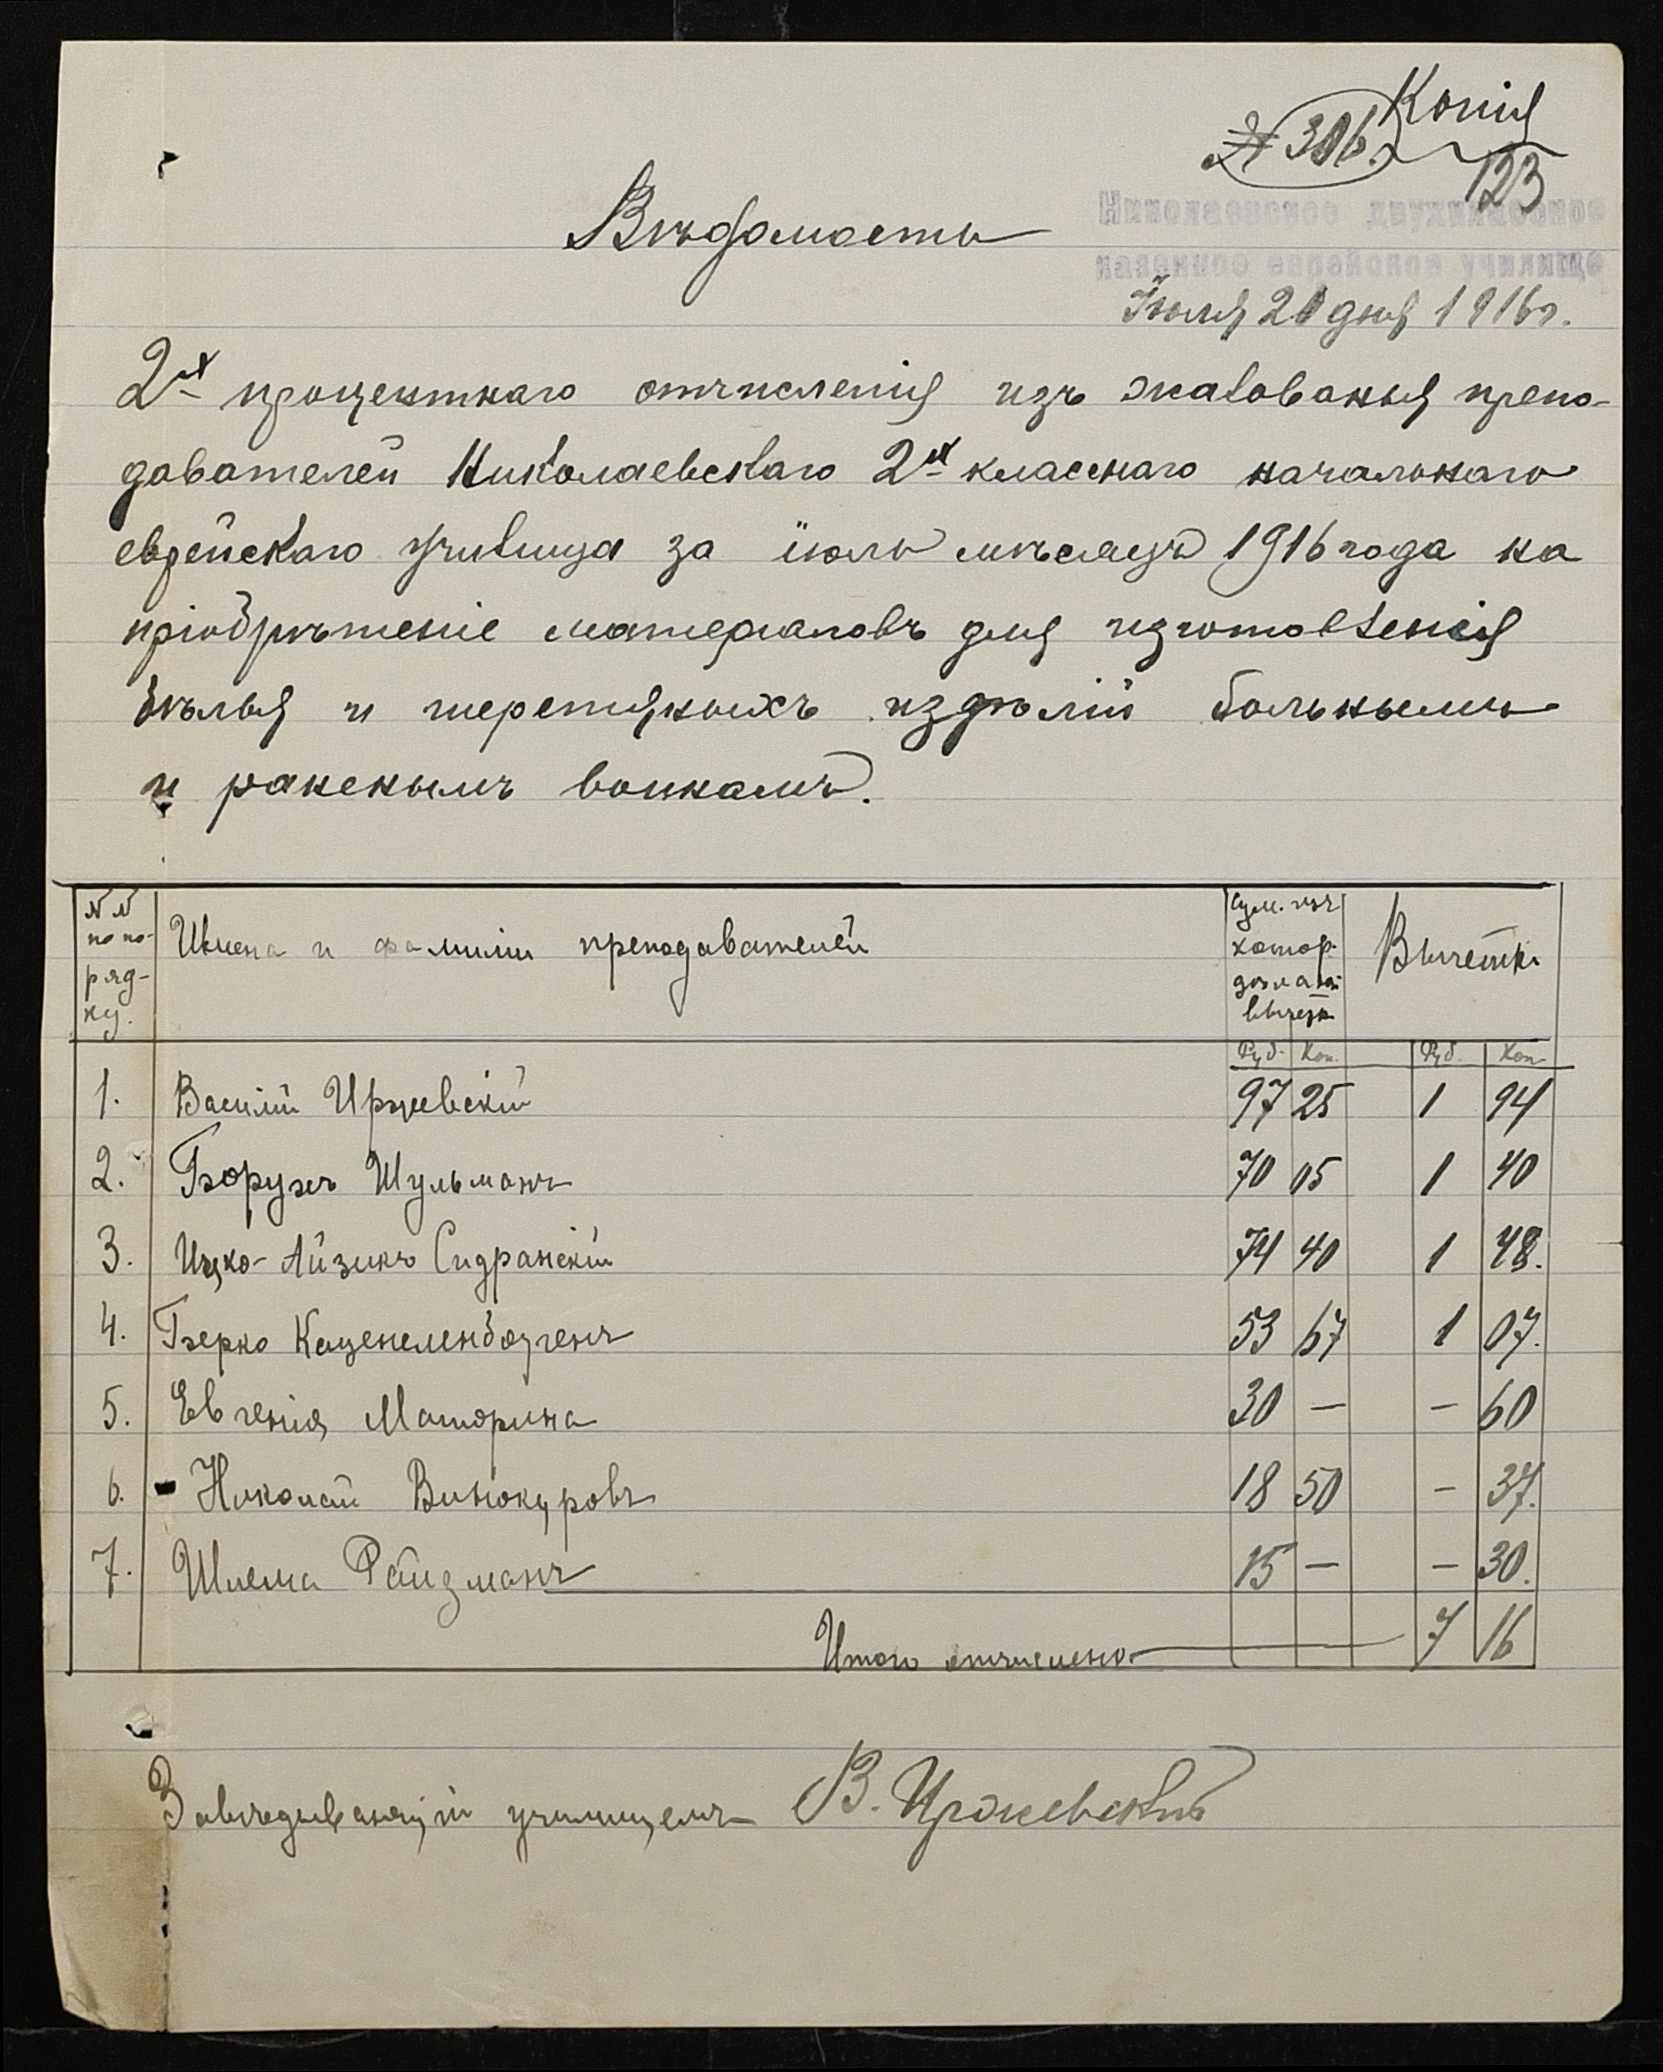 Копія
№ 306.
123
Николаевское двухклассное
казенное еврейское училище
Вѣдомость
Іюля 20 дня 1916 г.
2х процентнаго отчисленія изъ жалованья препо-
давателей Николаевскаго 2х класснаго начальнаго
еврейскаго училища за іюль мѣсяцъ 1916 года на
пріобрѣтеніе матеріаловъ для изготовленія
бѣлья и шерстяныхъ издѣлій больнымъ
и раненымъ воинамъ.
№ № по по- ряд- ку. Имена и фамиліи преподавателей Сум. изъ котор. дѣлался вычетъ Вычеты
Руб. Коп. Руб. Коп.
1. Василій Иржевскій 97 25 1 94
2. Борухъ Шульманъ 70 05 1 40
3. Ицко-Айзикъ Сидранскій 74 40 1 48.
4. Берко Каценеленбогенъ 53 67 1 07.
5. Евгенія Маторина 30 — — 60
6. Николай Винокуровъ 18 50 — 37.
7. Шлема Райзманъ 15 — — 30.
Итого отчислено 7 16
Завѣдывающій училищемъ В. Иржевскій